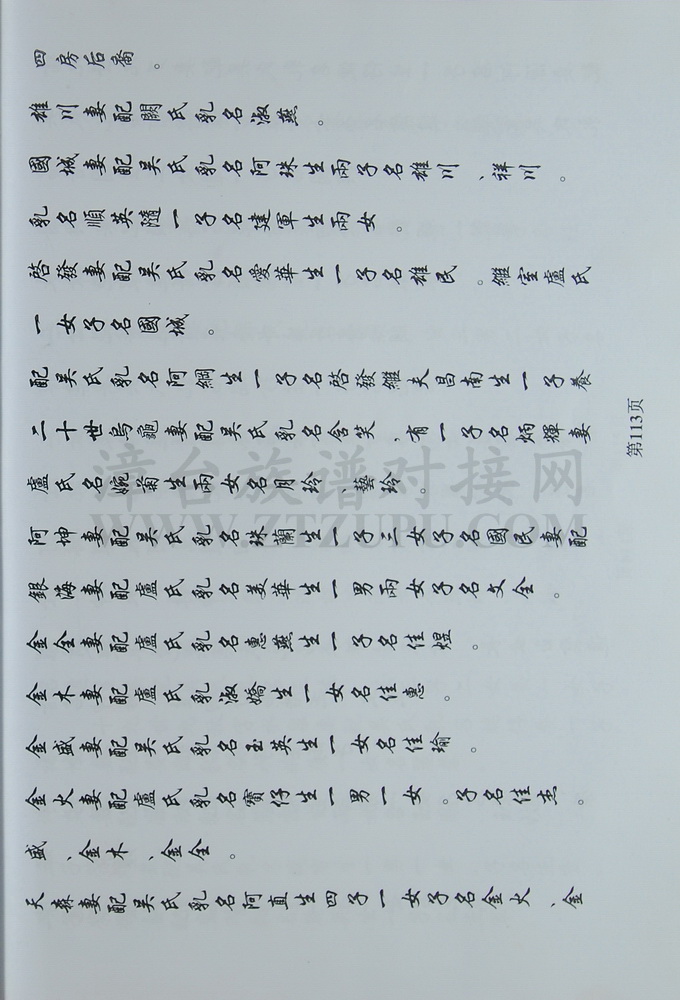 天森妻配吴氏乳名阿直生四子一女子名金火、金
盛、金木、金全。
金火妻配盧氏乳名寶仔生一男一女。子名佳杰。
金盛妻配吴氏乳名玉英生一女名佳瑜。
金木妻配盧氏乳淑嬌生一女名佳惠。
金全妻配盧氏乳名惠燕生一子名佳煜。
銀海妻配盧氏乳名美華生一男兩女子名文全。
阿坤妻配吴氏乳名珠蘭生一子三女子名國民妻配
盧氏名婉菊生兩女名月玲、藝玲。
二十世烏龜妻配吴氏乳名含笑，有一子名炳輝妻
配吴氏乳名阿綢生一子名啓發繼夫昌南生一子養
一女子名國城。
啓發妻配吴氏乳名愛華生一子名雄民。繼室盧氏
乳名順英隨一子名建軍生兩女。
國城妻配吴氏乳名阿珠生兩子名雄川、祥川。
雄川妻配闕氏乳名淑燕。
四房后裔。
第113页
漳台族谱对接网
WWW.ZTZUPU.COM